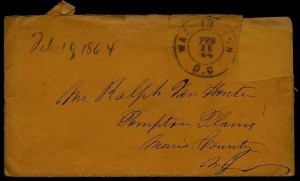 Feb. 19 1864
WASHINGTON
FEB
D.C
Mr. Ralph Van Houten
Pompton Plains
Morris County
N.J